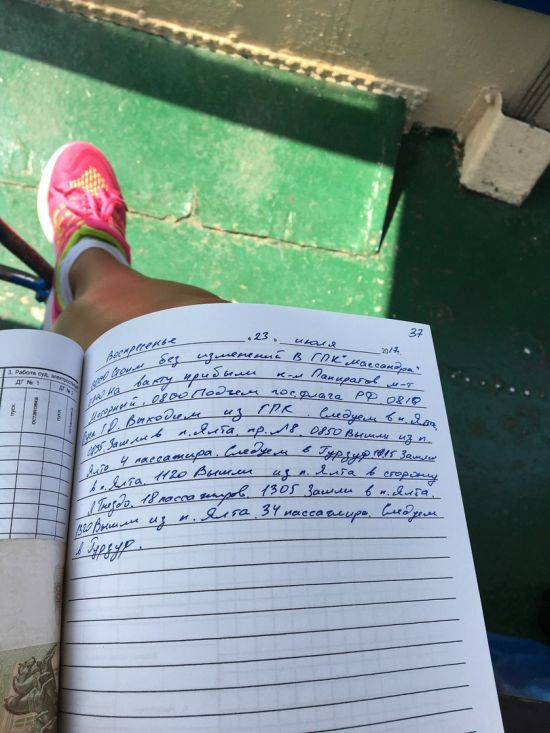 37
Воскресенье "23" июля 2017г.
0000 Стоим без изменений в ГПК "Массандра".
0740 На вахту прибыли к-н Панкратов м-т
Нагорный. 0800 Подъем гос.флага РФ 0810
Г.Д. Выходим из ГПК. Следуем в п. Ялта,
0835 Зашли в п. Ялта пр. №8. 0850 Вышли из п.
Ялта 4 пассажира. Следуем в Гурзуф Зашли
в п. Ялта. 1120 Вышли из п. Ялта в сторону
Л. Гнездо. 18 пассажиров. 1305 Зашли в п. Ялта.
1320 Вышли из п. Ялта. 34 пассажира. Следуем
в Гурзуф.
3. Работа суд. электростанции
ДГ № 1
ДГ № 2
пуск
остановка
пуск